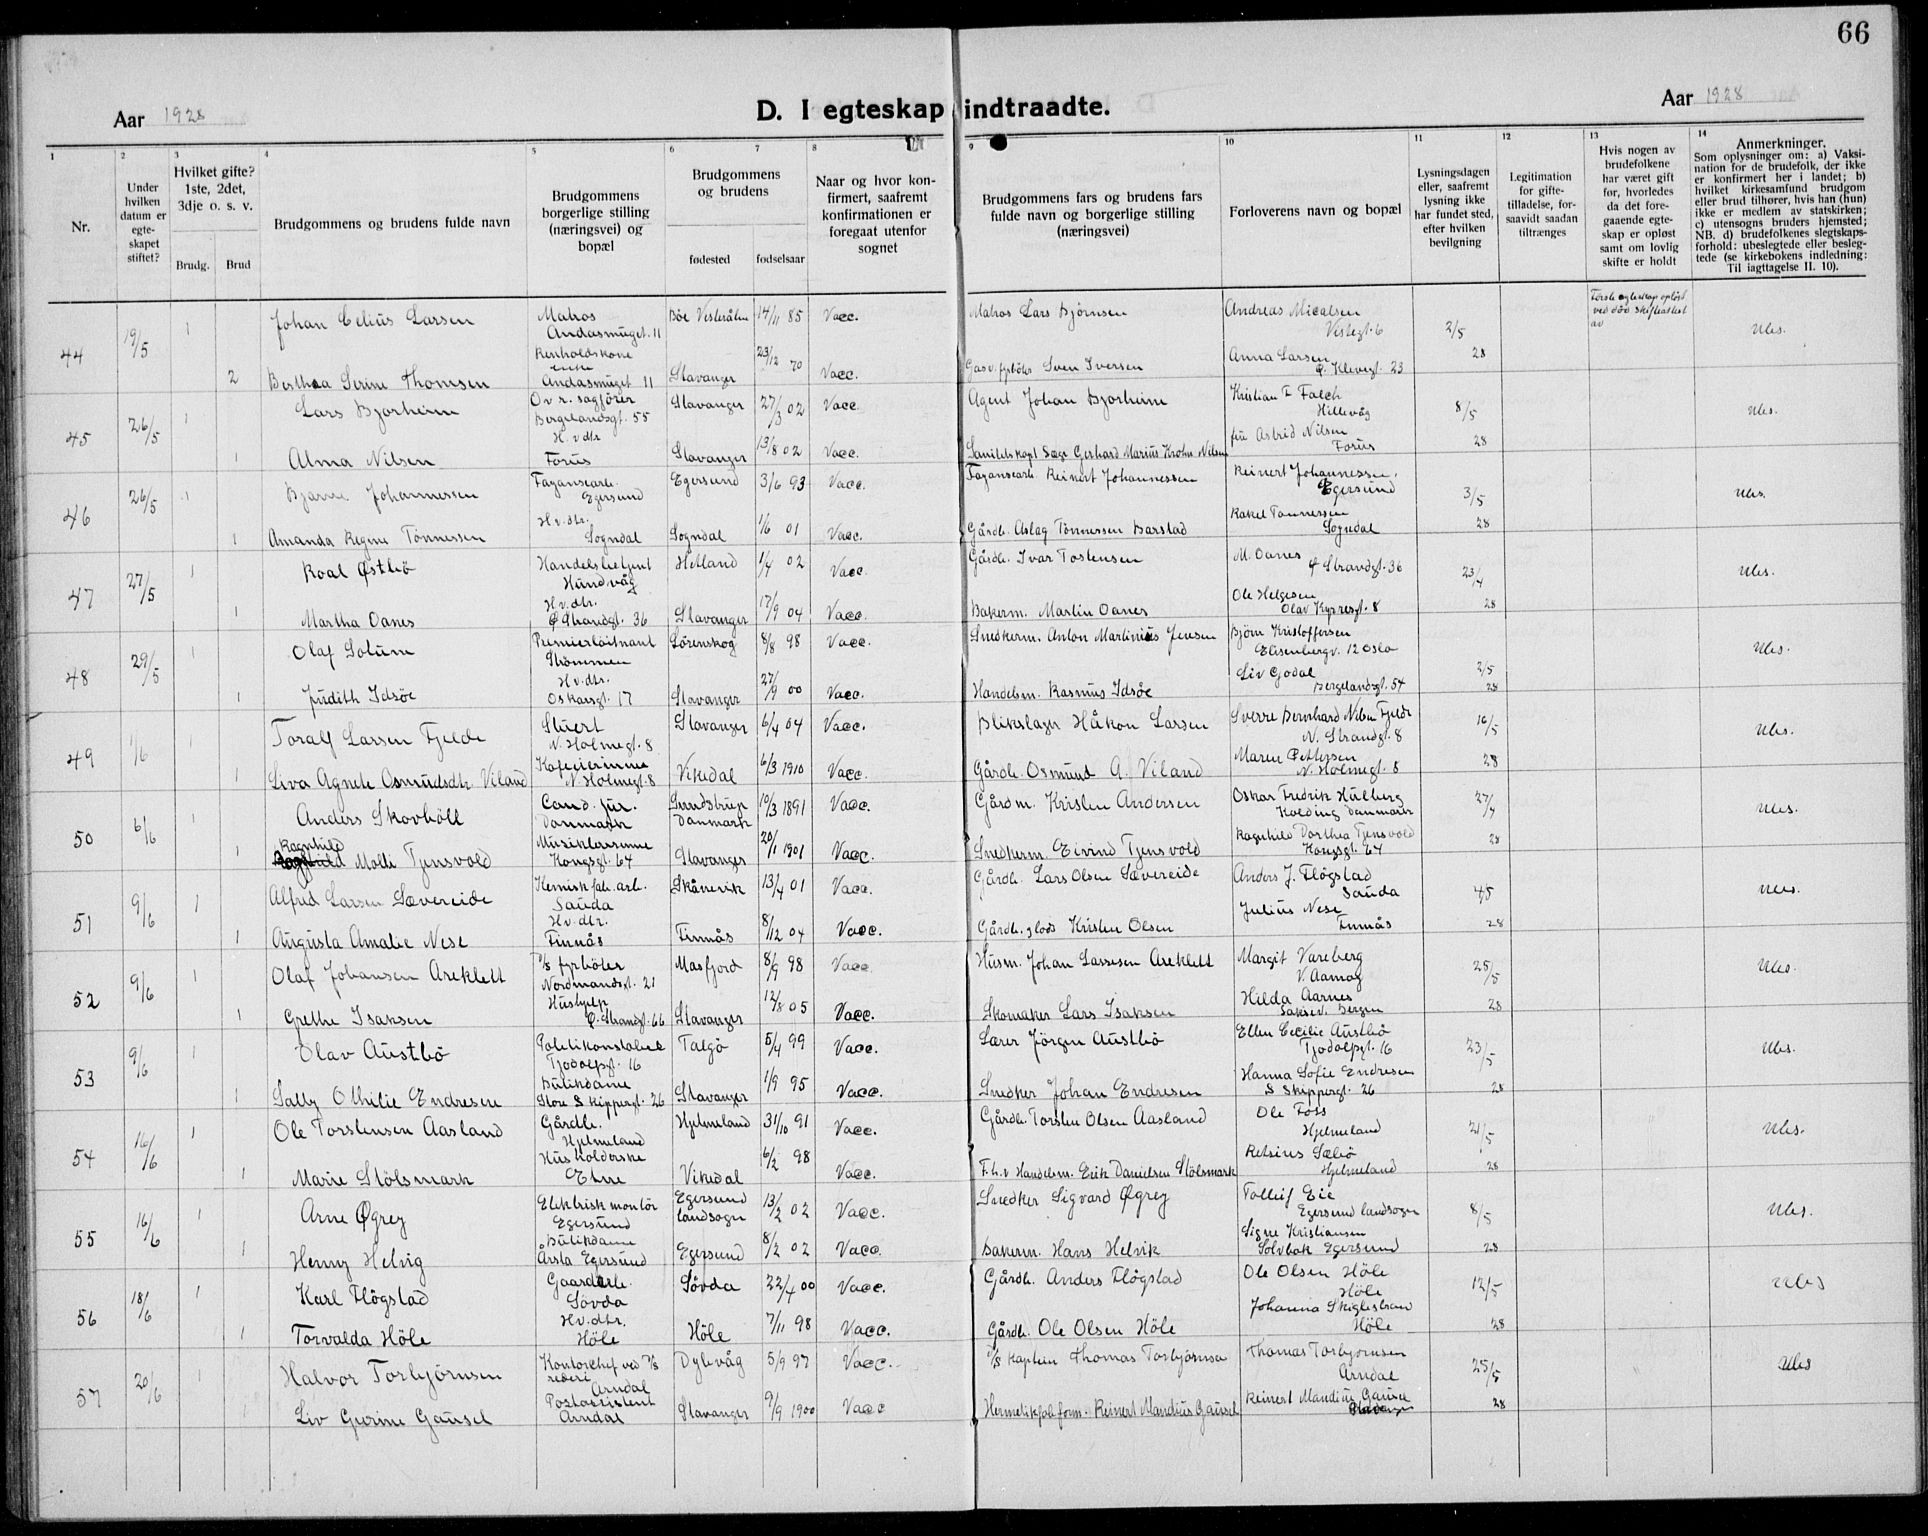 66
Aar 1928
D. I egteskap indtraadte.
Aar 1928
1 2 3 4 5 6 7 8 9 10 11 12 13 14
Nr.
Under hvilken datum er egteskapet stiftet?
Hvilket gifte? 1ste, 2det, 3dje o. s. v.
Brudg. Brud
Brudgommens og brudens fulde navn
Brudgommens borgerlige stilling (næringsvei) og bopæl
Brudgommens og brudens
fødested fødselsaar
Naar og hvor konfirmert, saafremt konfirmationen er foregaat utenfor sognet
Brudgommens fars og brudens fars fulde navn og borgerlige stilling (næringsvei)
Forloverens navn og bopæl
Lysningsdagen eller, saafremt lysning ikke har fundet sted, efter hvilken bevilgning
Legitimation for giftetilladelse, forsaavidt saadan tiltrænges
Hvis nogen av brudefolkene har været gift før, hvorledes da det foregaaende egteskap er opløst samt om lovlig skifte er holdt
Anmerkninger.
Som oplysninger om: a) Vaksination for de brudefolk, der ikke er konfirmert her i landet; b) hvilket kirkesamfund brudgom eller brud tilhører, hvis han (hun) ikke er medlem av statskirken; c) utensogns bruders hjemsted; NB. d) brudefolkenes slegtskapsforhold: ubeslegtede eller beslegtede (se kirkebokens indledning: Til iagttagelse II. 10).
44 19/5 1 Johan Celius Larsen Matros Andasmuget. 11 Böe Vesterålen 14/11 85 Vacc. Matros Lars Bjørnsen Andreas Micalsen Vistegt. 6 2/5 28 Første egteskap opløst ved död skifteattest av Ubs.
2 Berthea Serine Thomsen Renholdskone enke Andasmuget 11 Stavanger 23/12 70 Vacc. Gasv. fyrböter Sven Iversen Anna Larsen Ø. Klevegt. 23
45 26/5 1 Lars Bjorheim Ov. r. sagfører Bergelandsgt. 55 Stavanger 27/3 02 Vacc. Agent Johan Bjorheim Kristian F Falch Hillevåg 8/5 28 Ubs.
1 Alma Nilsen H. v dtr Forus Stavanger 13/8 02 Vacc. Sanitetskapt Læge Gerhard Marius Krohn Nilsen fru Astrid Nilsen Forus
46 26/5 1 Bjarne Johannessen Fayansearb. Egersund Egersund 3/6 93 Vacc. Fayansearb. Reinert Johannessen Reinert Johannessen. Egersund 3/5 28 Ubs.
1 Amanda Regine Tönnessen H. v. dtr. Sogndal Sogndal 1/6 01 Vacc. Gårdb. Aslag Tönnessen Barstad Rakel Tønnessen Sogndal
47 27/5 1 Roal Østbö Handelsbetjent Hundvåg Hetland 1/4 02 Vacc. Gårdb. Ivar Tostensen M. Oanes Ø Strandgt. 36 23/4 28 Ubs.
1 Martha Oanes H v. dtr. Ø Strandgt. 36 Stavanger 17/9 04 Vacc. Bakerm. Martin Oanes Ole Helgesen Olav Kyrresgt. 8
48 29/5 1 Olaf Solum Premierlöitnant Strömmen Lörenskog 8/8 98 Vacc. Snedkerm. Anton Martinius Jensen Bjørn Kristoffersen Elisenbergv. 12 Oslo 2/5 28 Ubs.
1 Judith Idsöe H v. dtr. Oskarsgt. 17 Stavanger 27/9 00 Vacc. Handelsm. Rasmus Idsöe Liv Godal Bergelandsgt. 54
49 1/6 1 Toralf Larsen Fjelde Stuert N. Holmegt. 8 Stavanger 6/4 04 Vacc. Blikslager Håkon Larsen Sverre Bernhard Nilsen Fjelde N. Strandgt. 8 16/5 28 Ubs.
1 Liva Agnete Osmundsdtr Viland Kafeeierinne N. Holmegt. 8 Vikedal 6/3 1910 Vacc. Gårdb. Osmund A. Viland Maren Pettersen N. Holmegt. 8
50 6/6 1 Anders Skovhöll Cand. jur. Danmark Danmark 10/3 1891 Vacc. Gårdm. Kristen Andersen Oskar Fredrik Hulberg Kolding Danmark 27/4 28 Ubs.
1 Ragnhild Molle Tjensvold Musiklærerinne Kongsgt. 64 Stavanger 20/1 1901 Vacc. Snedkerm. Eivind Tjensvold Ragnhild Dorthea Tjensvold Kongsgt. 64
51 9/6 1 Alfred Larsen Sævereide Kemisk fab. arb. Sauda Skånevik 13/4 01 Vacc. Gårdb. Lars Olsen Sævereide Anders J. Flögstad Sauda 4/5 28 Ubs.
1 Augusta Amalie Nese H v. dtr. Finnås Finnås 8/12 04 Vacc. Gårdb. Kristen Olsen Julius Nese Finnås
52 9/6 1 Olaf Johansen Areklett D/s fyrböter Nordmandsgt. 21 Masfjord 8/9 98 Vacc. Husm. Johan Lassesen Areklett Margit Vareberg V. Aamøg 25/5 28 Ubs.
1 Grethe Isaksen Hushjelp Ø. Strandgt. 66 Stavanger 12/8 05 Vacc. Skomaker Lars Isaksen Hilda Aarnes Laksev. Bergen
53 9/6 1 Olav Austbö Politikonstabel Tjodolfsgt. 16 Talgö 5/4 99 Vacc. Lærer Jörgen Austbö Ellen Cecilie Austbö Tjodolfsgt. 16 23/5 28 Ubs.
1 Sally Othilie Endresen Butikdame Store Skippergt. 26 Stavanger 1/9 95 Vacc. Snedker Johan Endresen Hanna Sofie Endresen S Skippergt. 26
54 16/6 1 Ole Torstensen Aasland Gårdb. Hjelmeland Hjelmeland 31/10 91 Vacc. Gårdb Torsten Olsen Aasland Ole Foss Hjelmeland 21/5 28 Ubs.
1 Marie Stölsmark Husholderske Etne Vikedal 6/2 98 Vacc. F. h. v Handelsm. Erik Danielsen Stölsmark Retsius Sæbö Hjelmeland
55 16/6 1 Arne Øgrey Elektrisk montör Egersund Egersund landsogn 13/2 02 Vacc. Snedker Sigvard Øgrey Tolleif Eie Egersund landsogn 8/5 28 Ubs.
1 Henny Helvig Butikdame Årsta Egersund Egersund 8/2 02 Vacc. Bakerm. Hans Helvik Signe Kristiansen Solvbak Egersund
56 18/6 1 Karl Flögstad Gaardarb. Søvda Søvda 22/4 00 Vacc. Gårdb. Anders Flögstad Ole Olsen Höle Höle 12/5 28 Ubs
1 Torvalda Höle H v. dtr. Höle Höle 7/11 98 Vacc. Gårdb. Ole Olsen Höle Johanna Skiglestrand Höle
57 20/6 1 Halvor Torbjörnsen Kontorchef ved D/s rederi Arndal Dybvåg 5/9 97 Vacc. D/s Kaptein Thomas Torbjörnsen Thomas Torbjornsen Arndal 25/5 28 Ubs
1 Liv Gurine Gausel Postassistent Arndal Stavanger 9/9 1900 Vacc Hermetikfab. form. Reinert Mandius Gausel Reinert Mandius Gausel Stavanger